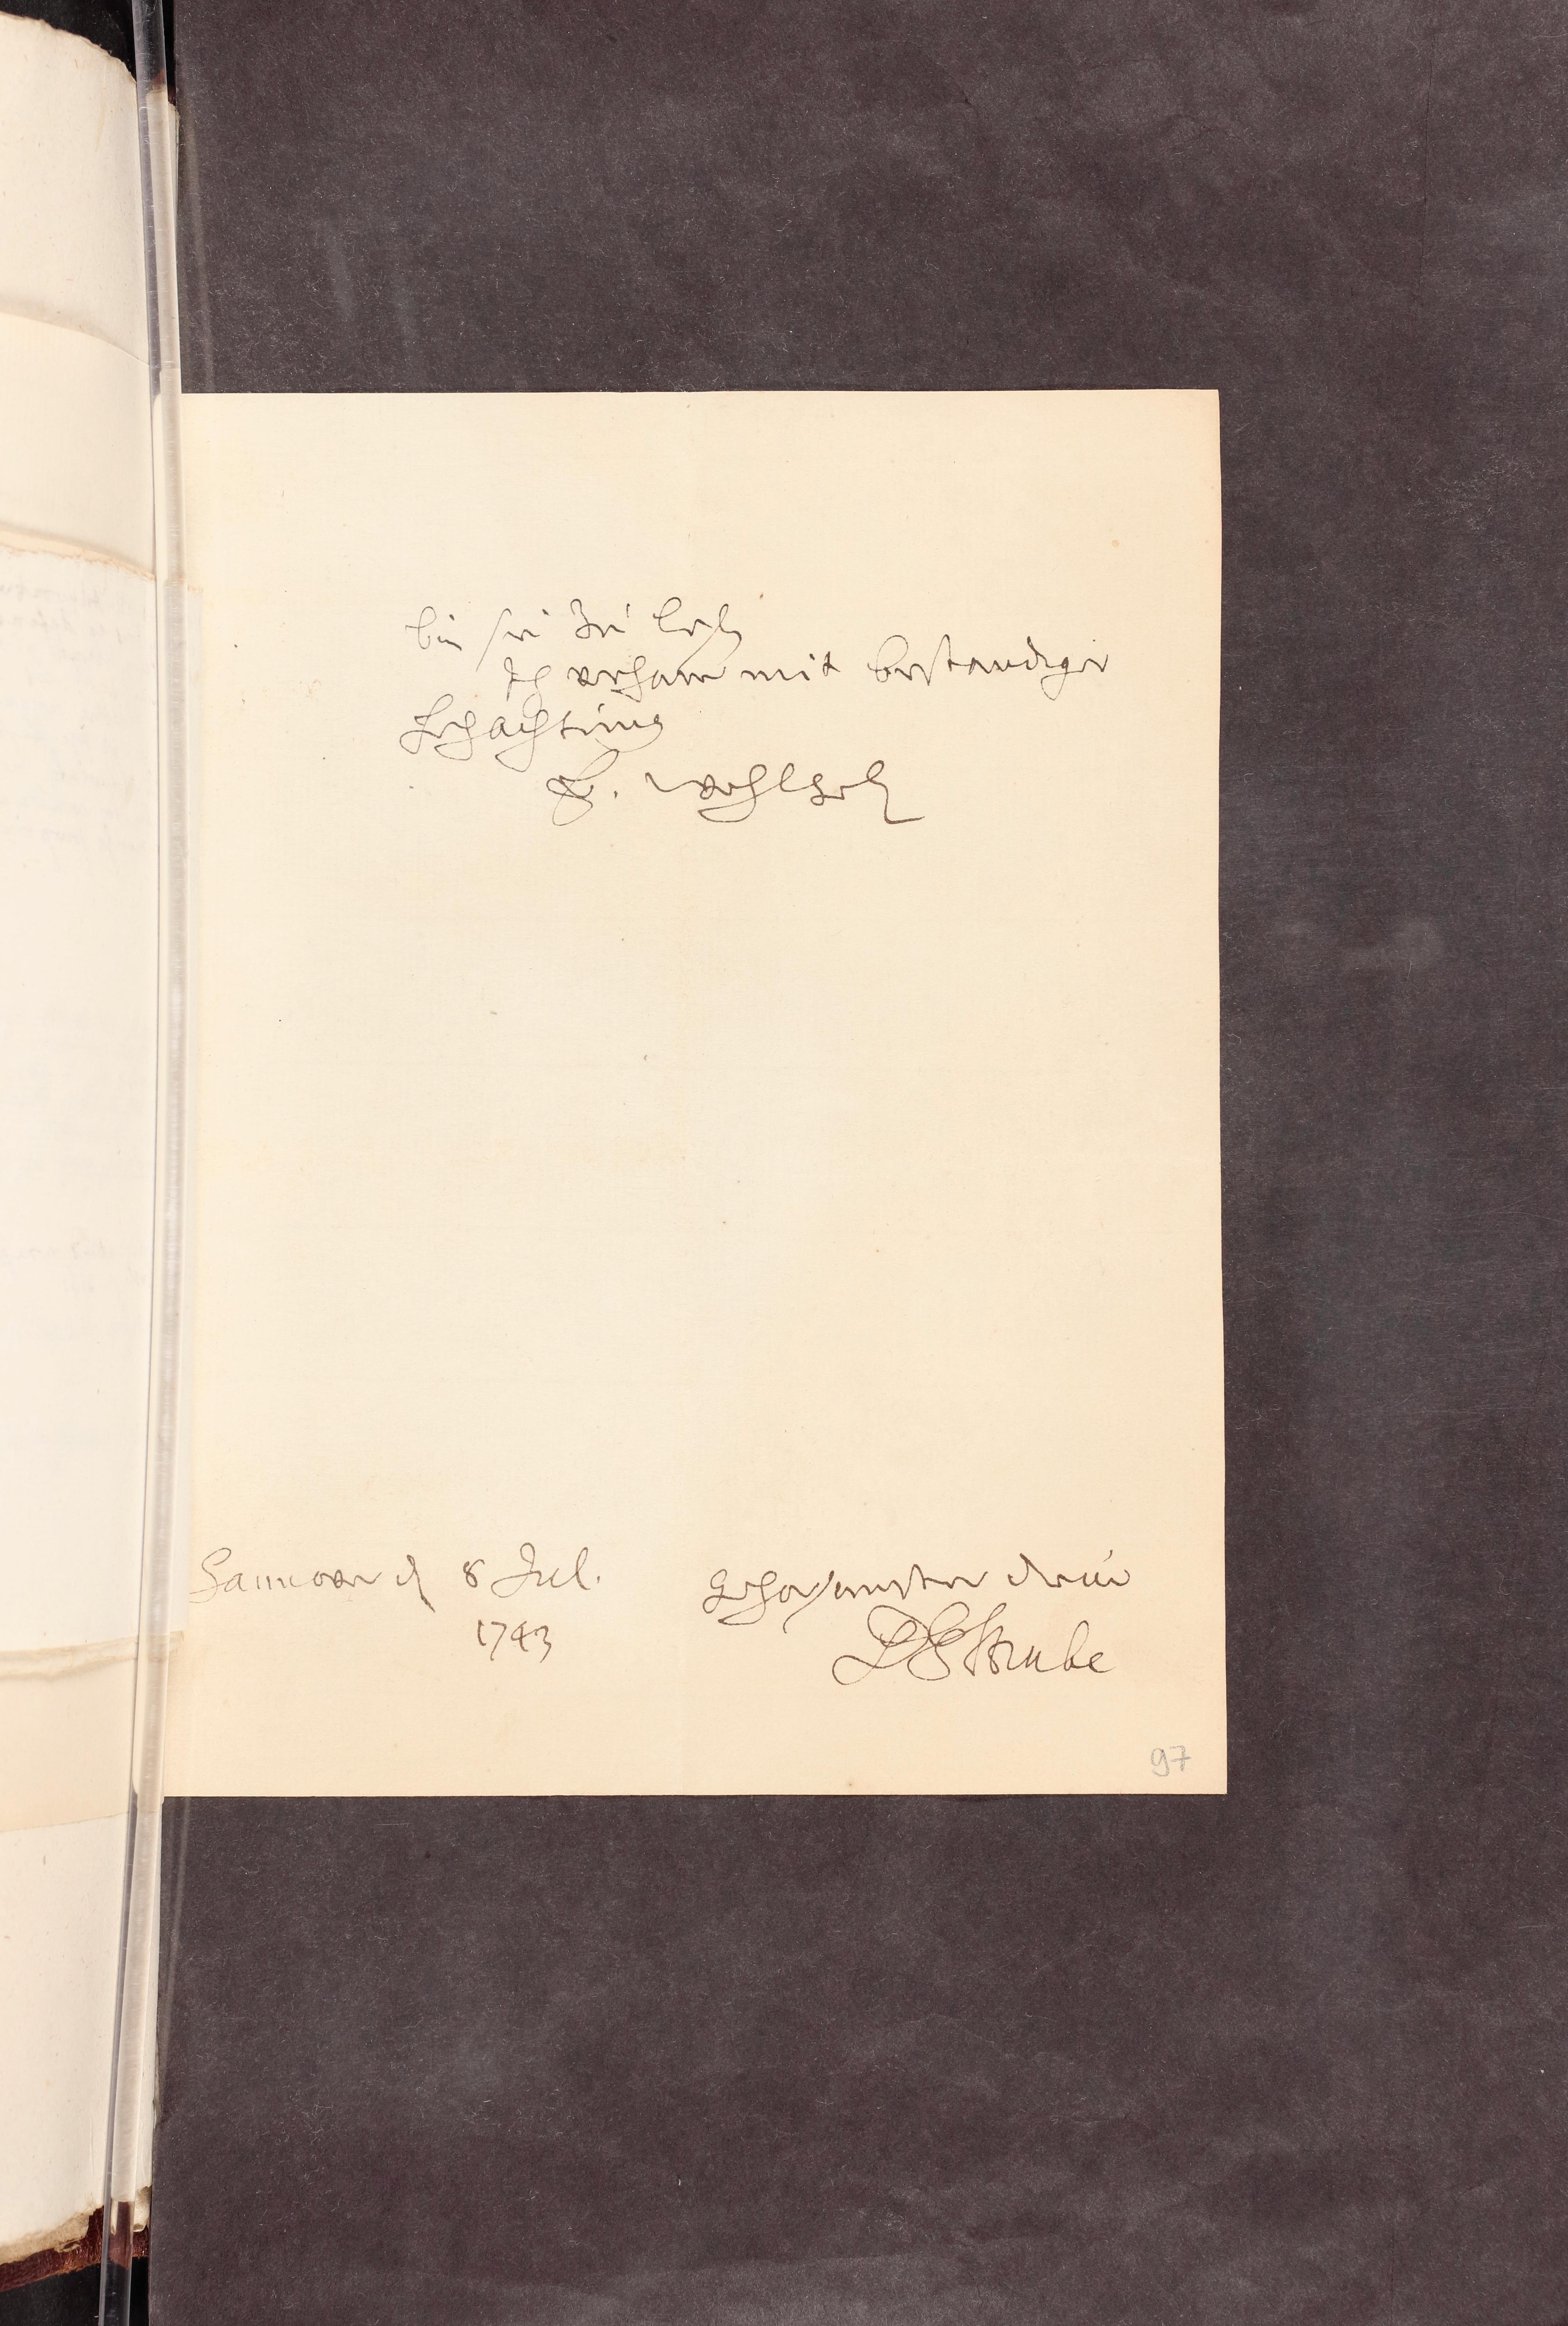 bin sie zu lesen
Ich verharre mit bestandiger
Hochachtung
E. Wohlgeb
Hannover d 8 Jul.
1743
gehorsamster diener
DGStrube
97